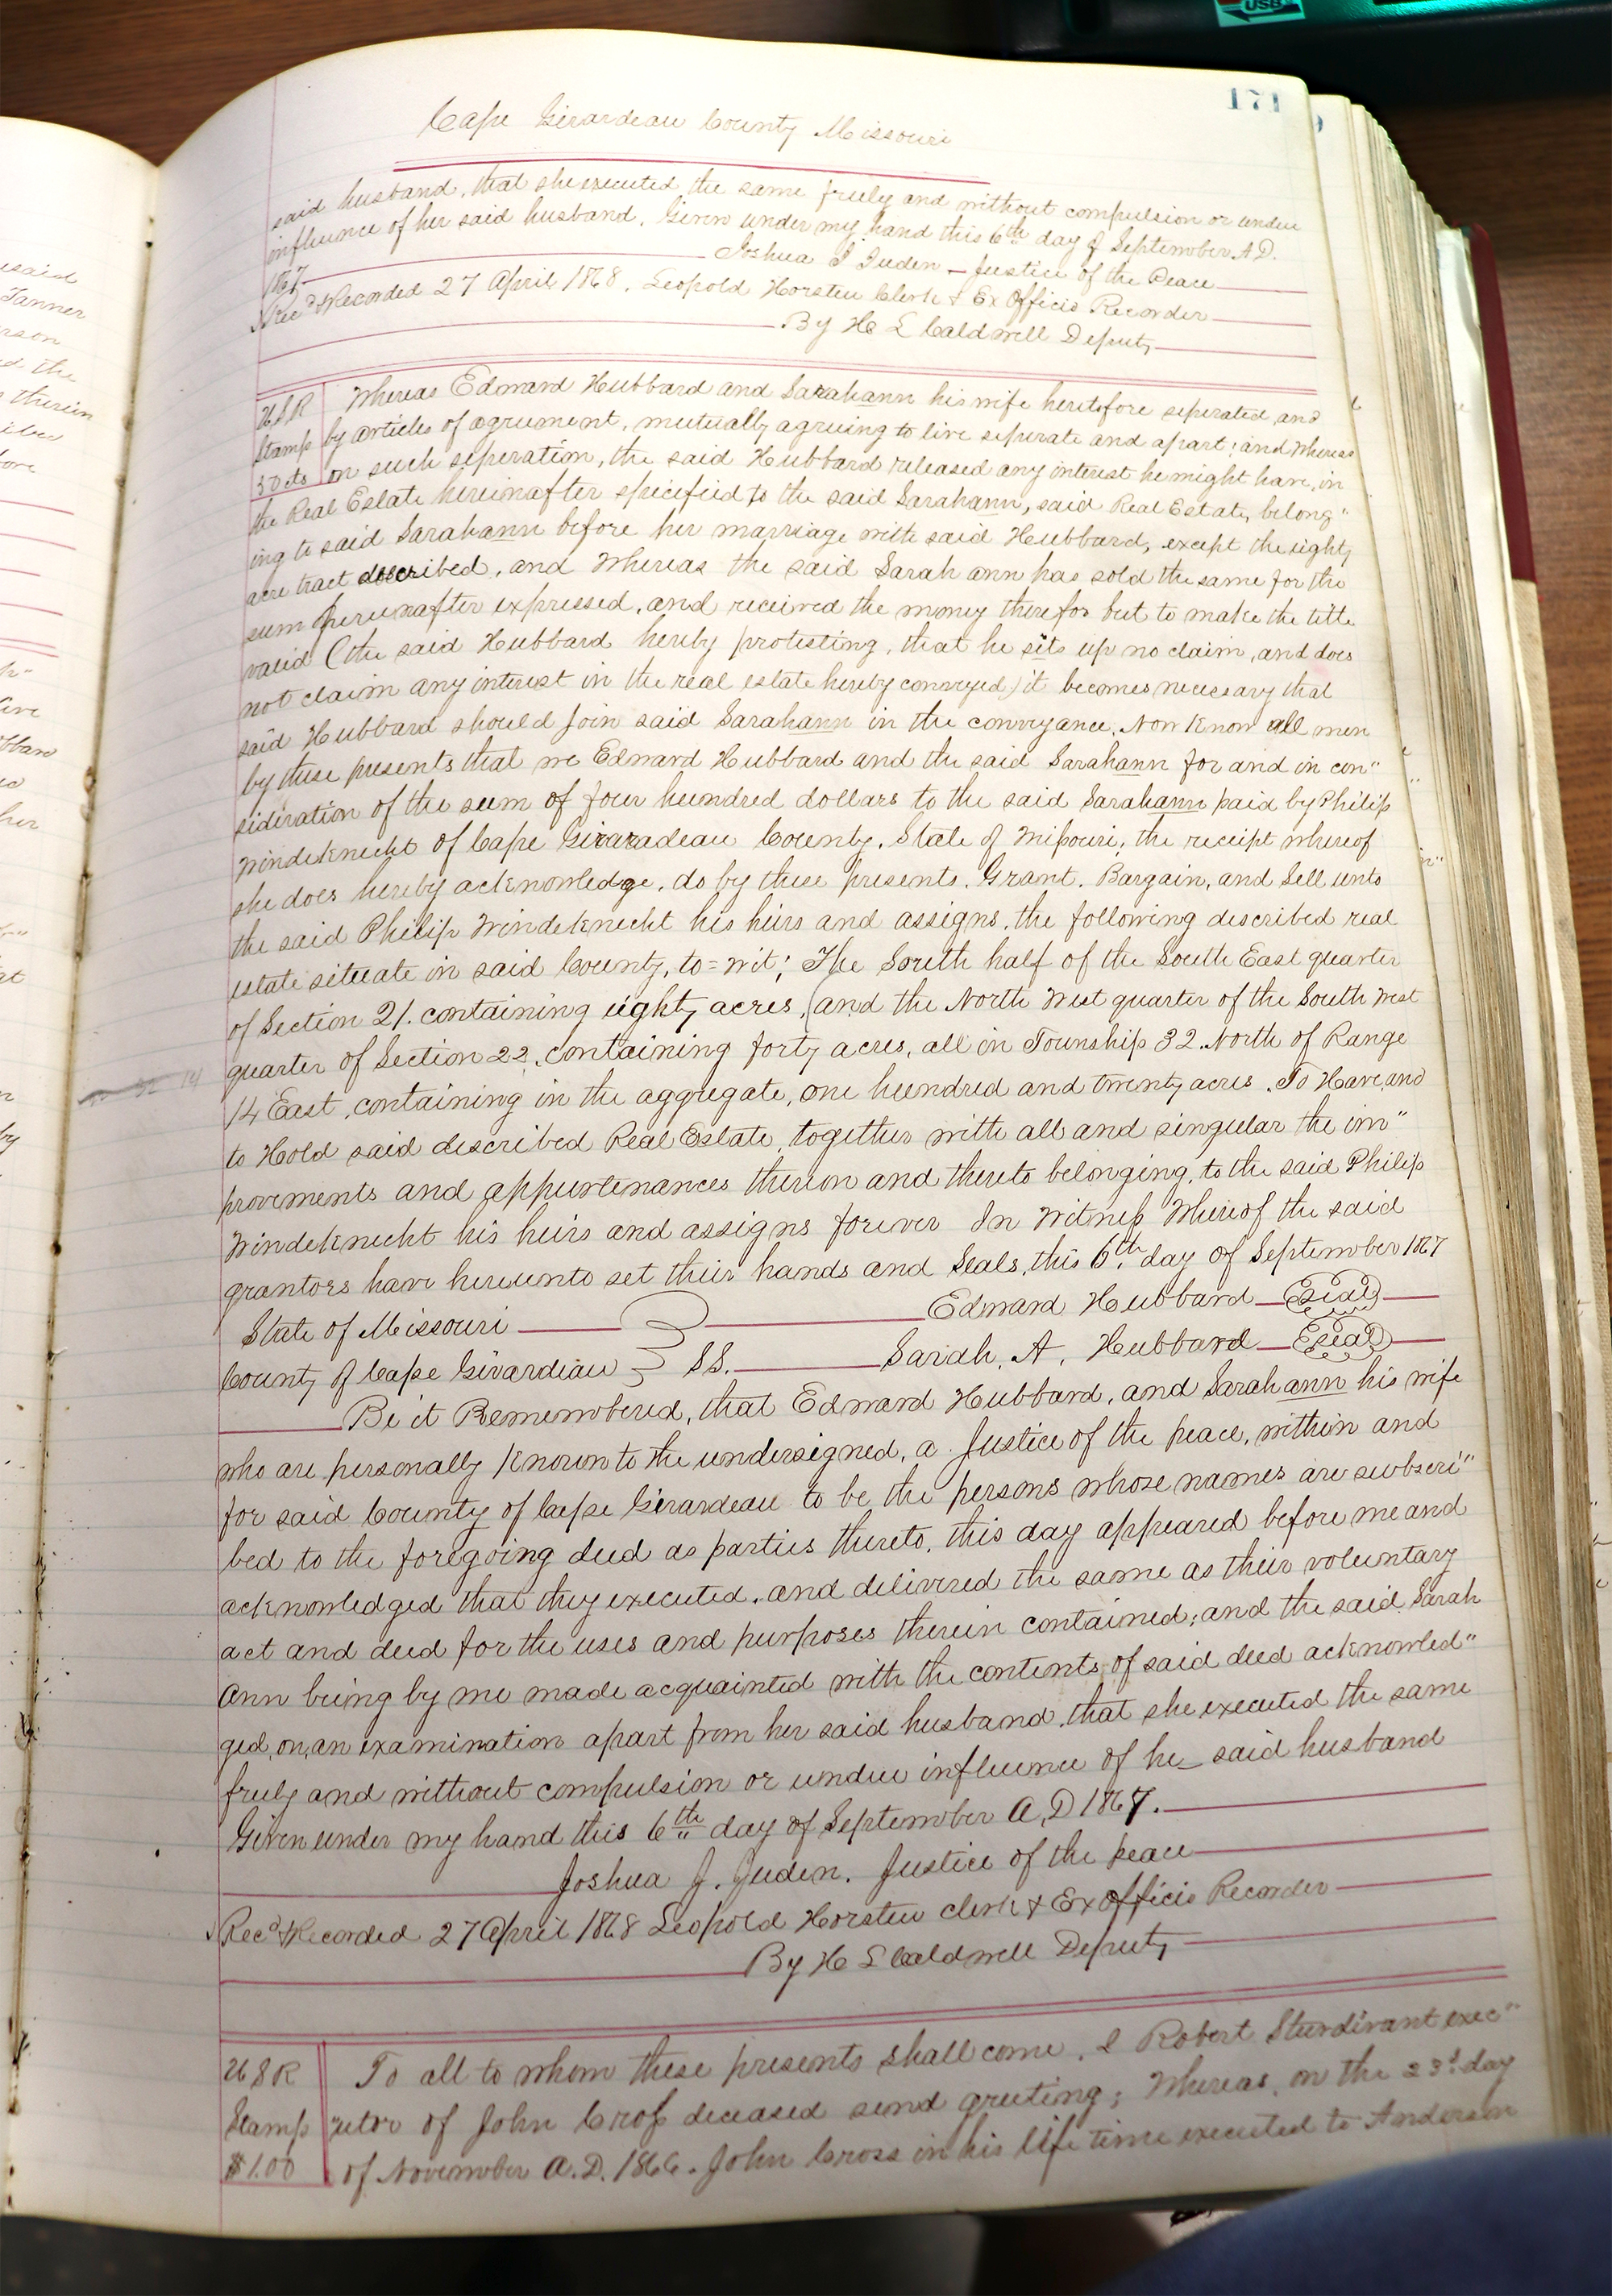 USB
171
Cape Girardeau County Missouri
said husband, that she executed the same freely and without compulsion or undue
influence of her said husband. Given under my hand this 6th day of September A.D.
1867.
Joshua J Juden - Justice of the Peace
Rec.d & Recorded 27 April 1868. Leopold Horsteu Clerk & Ex Officio Recorder
By H L Caldwell Deputy
U.S.R
Stamp
50 cts
Whereas Edward Hubbard and Sarahann his wife heretofore seperated and
by articles of agreement, mutually agreeing to live seperate and apart; and Whereas
on such seperation, the said Hubbard released any interest he might have, in
the Real Estate hereinafter specified to the said Sarahann, said Real Estate, belong"
ing to said Sarahann before her marriage with said Hubbard, except the eighty
acre tract described, and Whereas the said Sarah ann has sold the same for the
sum hereinafter expressed, and received the money therefor but to make the title
valid (the said Hubbard hereby protesting, that he sets up no claim, and does
not claim any interest in the real estate hereby conveyed) it becomes necessary that
said Hubbard should join said Sarahann in the conveyance. Now Know all men
by these presents that we Edward Hubbard and the said Sarahann for and in con"
sideration of the sum of four hundred dollars to the said Sarahann paid by Philip
Windeknecht of Cape Giraradeau County, State of Missouri, the receipt whereof
she does hereby acknowledge, do by these presents. Grant. Bargain, and Sell unto
the said Philip Windeknecht his heirs and assigns, the following described real
estate situate in said County, to=wit; The South half of the South East quarter
of Section 21. containing eighty acres, (and the North West quarter of the South West
quarter of Section 22. containing forty acres, all in Township 32. North of Range
32 14
14 East, containing in the aggregate, one hundred and twenty acres. To Have and
to Hold said described Real Estate, together with all and singular the im"
provements and appurtenances thereon and thereto belonging, to the said Philip
Windeknecht his heirs and assigns forever In Witness Whereof the said
grantors have hereunto set their hands and Seals, this 6th day of September 1867
Edward Hubbard Seal
State of Missouri
County of Cape Girardeau SS. Sarah. A. Hubbard Seal
Be it Remembered, that Edward Hubbard, and Sarahann his wife
who are personally Known to the undersigned, a Justice of the peace, within and
for said County of Cape Girardeau to be the persons whose names are subscri"
bed to the foregoing deed as parties thereto, this day appeared before me and
acknowledged that they executed, and delivered the same as their voluntary
act and deed for the uses and purposes therein contained; and the said Sarah
Ann being by me made acquainted with the contents of said deed acknowled"
ged, on, an examination apart from her said husband, that she executed the same
freely and without compulsion or undue influence of he_ said husband
Given under my hand this 6th day of September A.D 1867.
Joshua J. Juden. Justice of the peace
Rec.d & Recorded 27 April 1868 Leopold Horsteu clerk & Ex officio Recorder
By H L Caldwell Deputy
U S R
Stamp
$1.00
To all to whom these presents shall come. I Robert Sturdivant exec"
utor of John Cross deceased send greeting; Whereas, on the 23d day
of November A.D. 1866. John Cross in his life time executed to Anderson